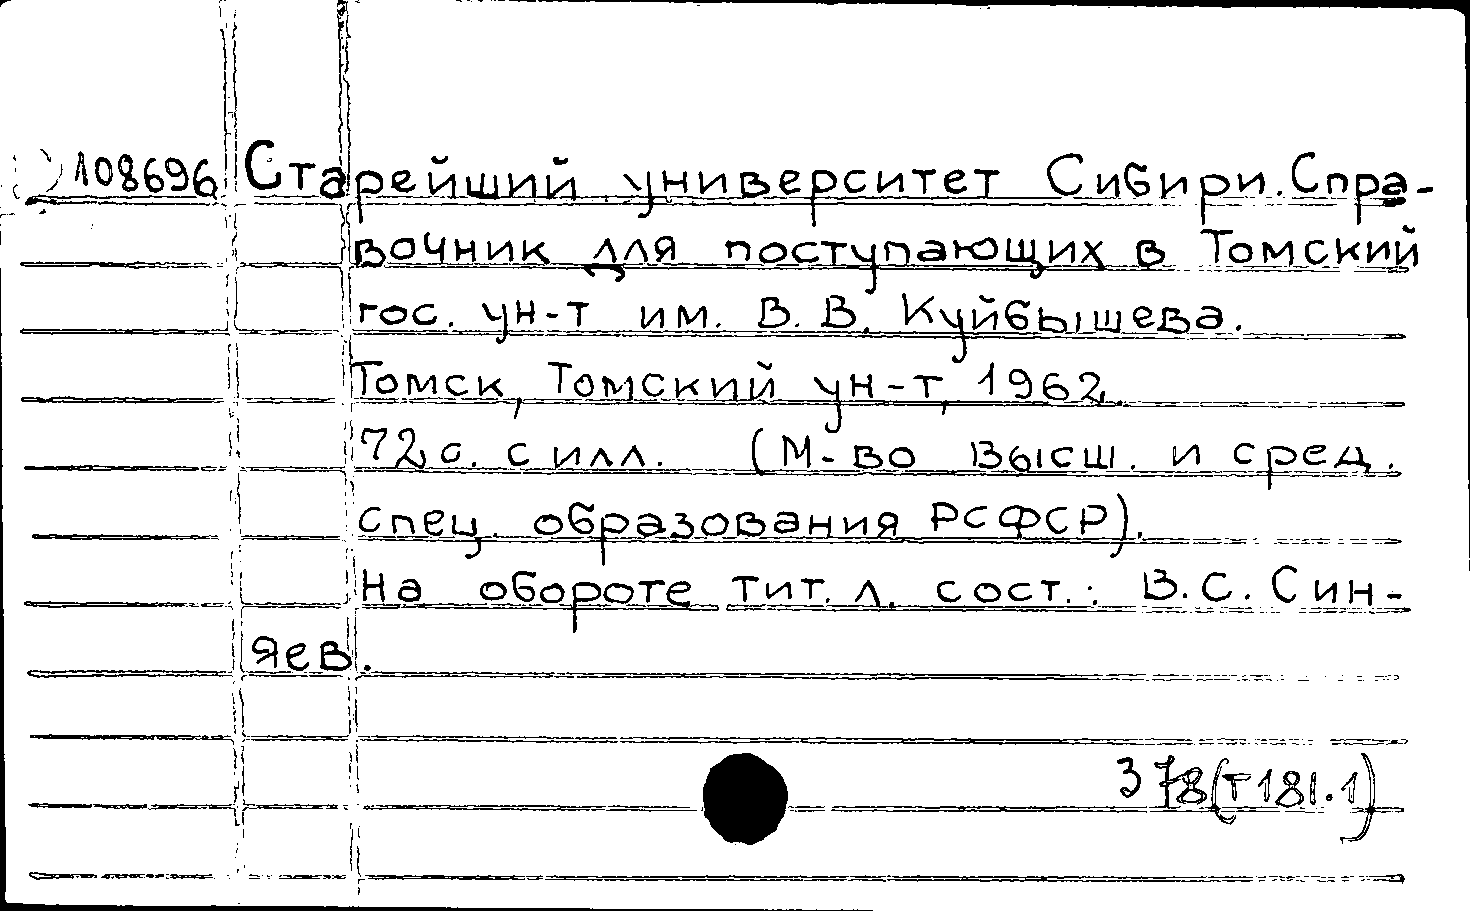 108696 Старейший университет Сибири. Спра-
вочник для поступающих в Томский
гос. ун-т им. В. В. Куйбышева.
Томск, Томский ун-т, 1962.
72 с. с илл. (М-во высш. и сред.
спец. образования РСФСР).
На обороте тит. л. сост.: В. С. Син-
яев.
378(Т181.1)